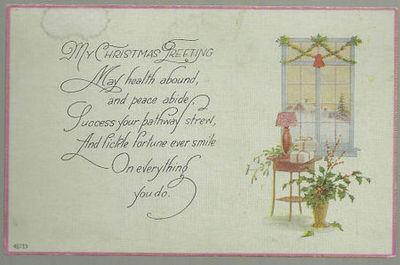 My Christmas Greeting
May health abound,
and peace abide,
Success your pathway strew,
And fickle fortune ever smile
On everything
you do.